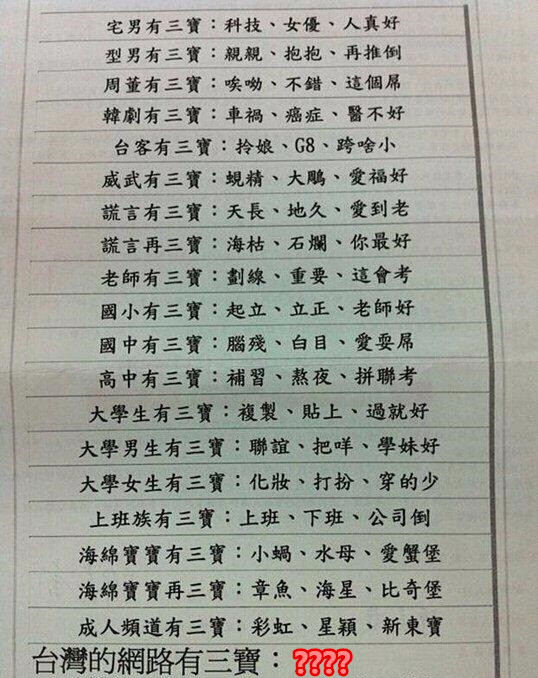 宅男有三寶：科技、女優、人真好
型男有三寶：親親、抱抱、再推倒
周董有三寶：唉呦、不錯、這個屌
韓劇有三寶：車禍、癌症、醫不好
台客有三寶：拎娘、G8、跨啥小
威武有三寶：蜆精、大鵰、愛福好
謊言有三寶：天長、地久、愛到老
謊言再三寶：海枯、石爛、你最好
老師有三寶：劃線、重要、這會考
國小有三寶：起立、立正、老師好
國中有三寶：腦殘、白目、愛耍屌
高中有三寶：補習、熬夜、拼聯考
大學生有三寶：複製、貼上、過就好
大學男生有三寶：聯誼、把咩、學妹好
大學女生有三寶：化妝、打扮、穿的少
上班族有三寶：上班、下班、公司倒
海綿寶寶有三寶：小蝸、水母、愛蟹堡
海綿寶寶再三寶：章魚、海星、比奇堡
成人頻道有三寶：彩虹、星穎、新東寶
台灣的網路有三寶：????